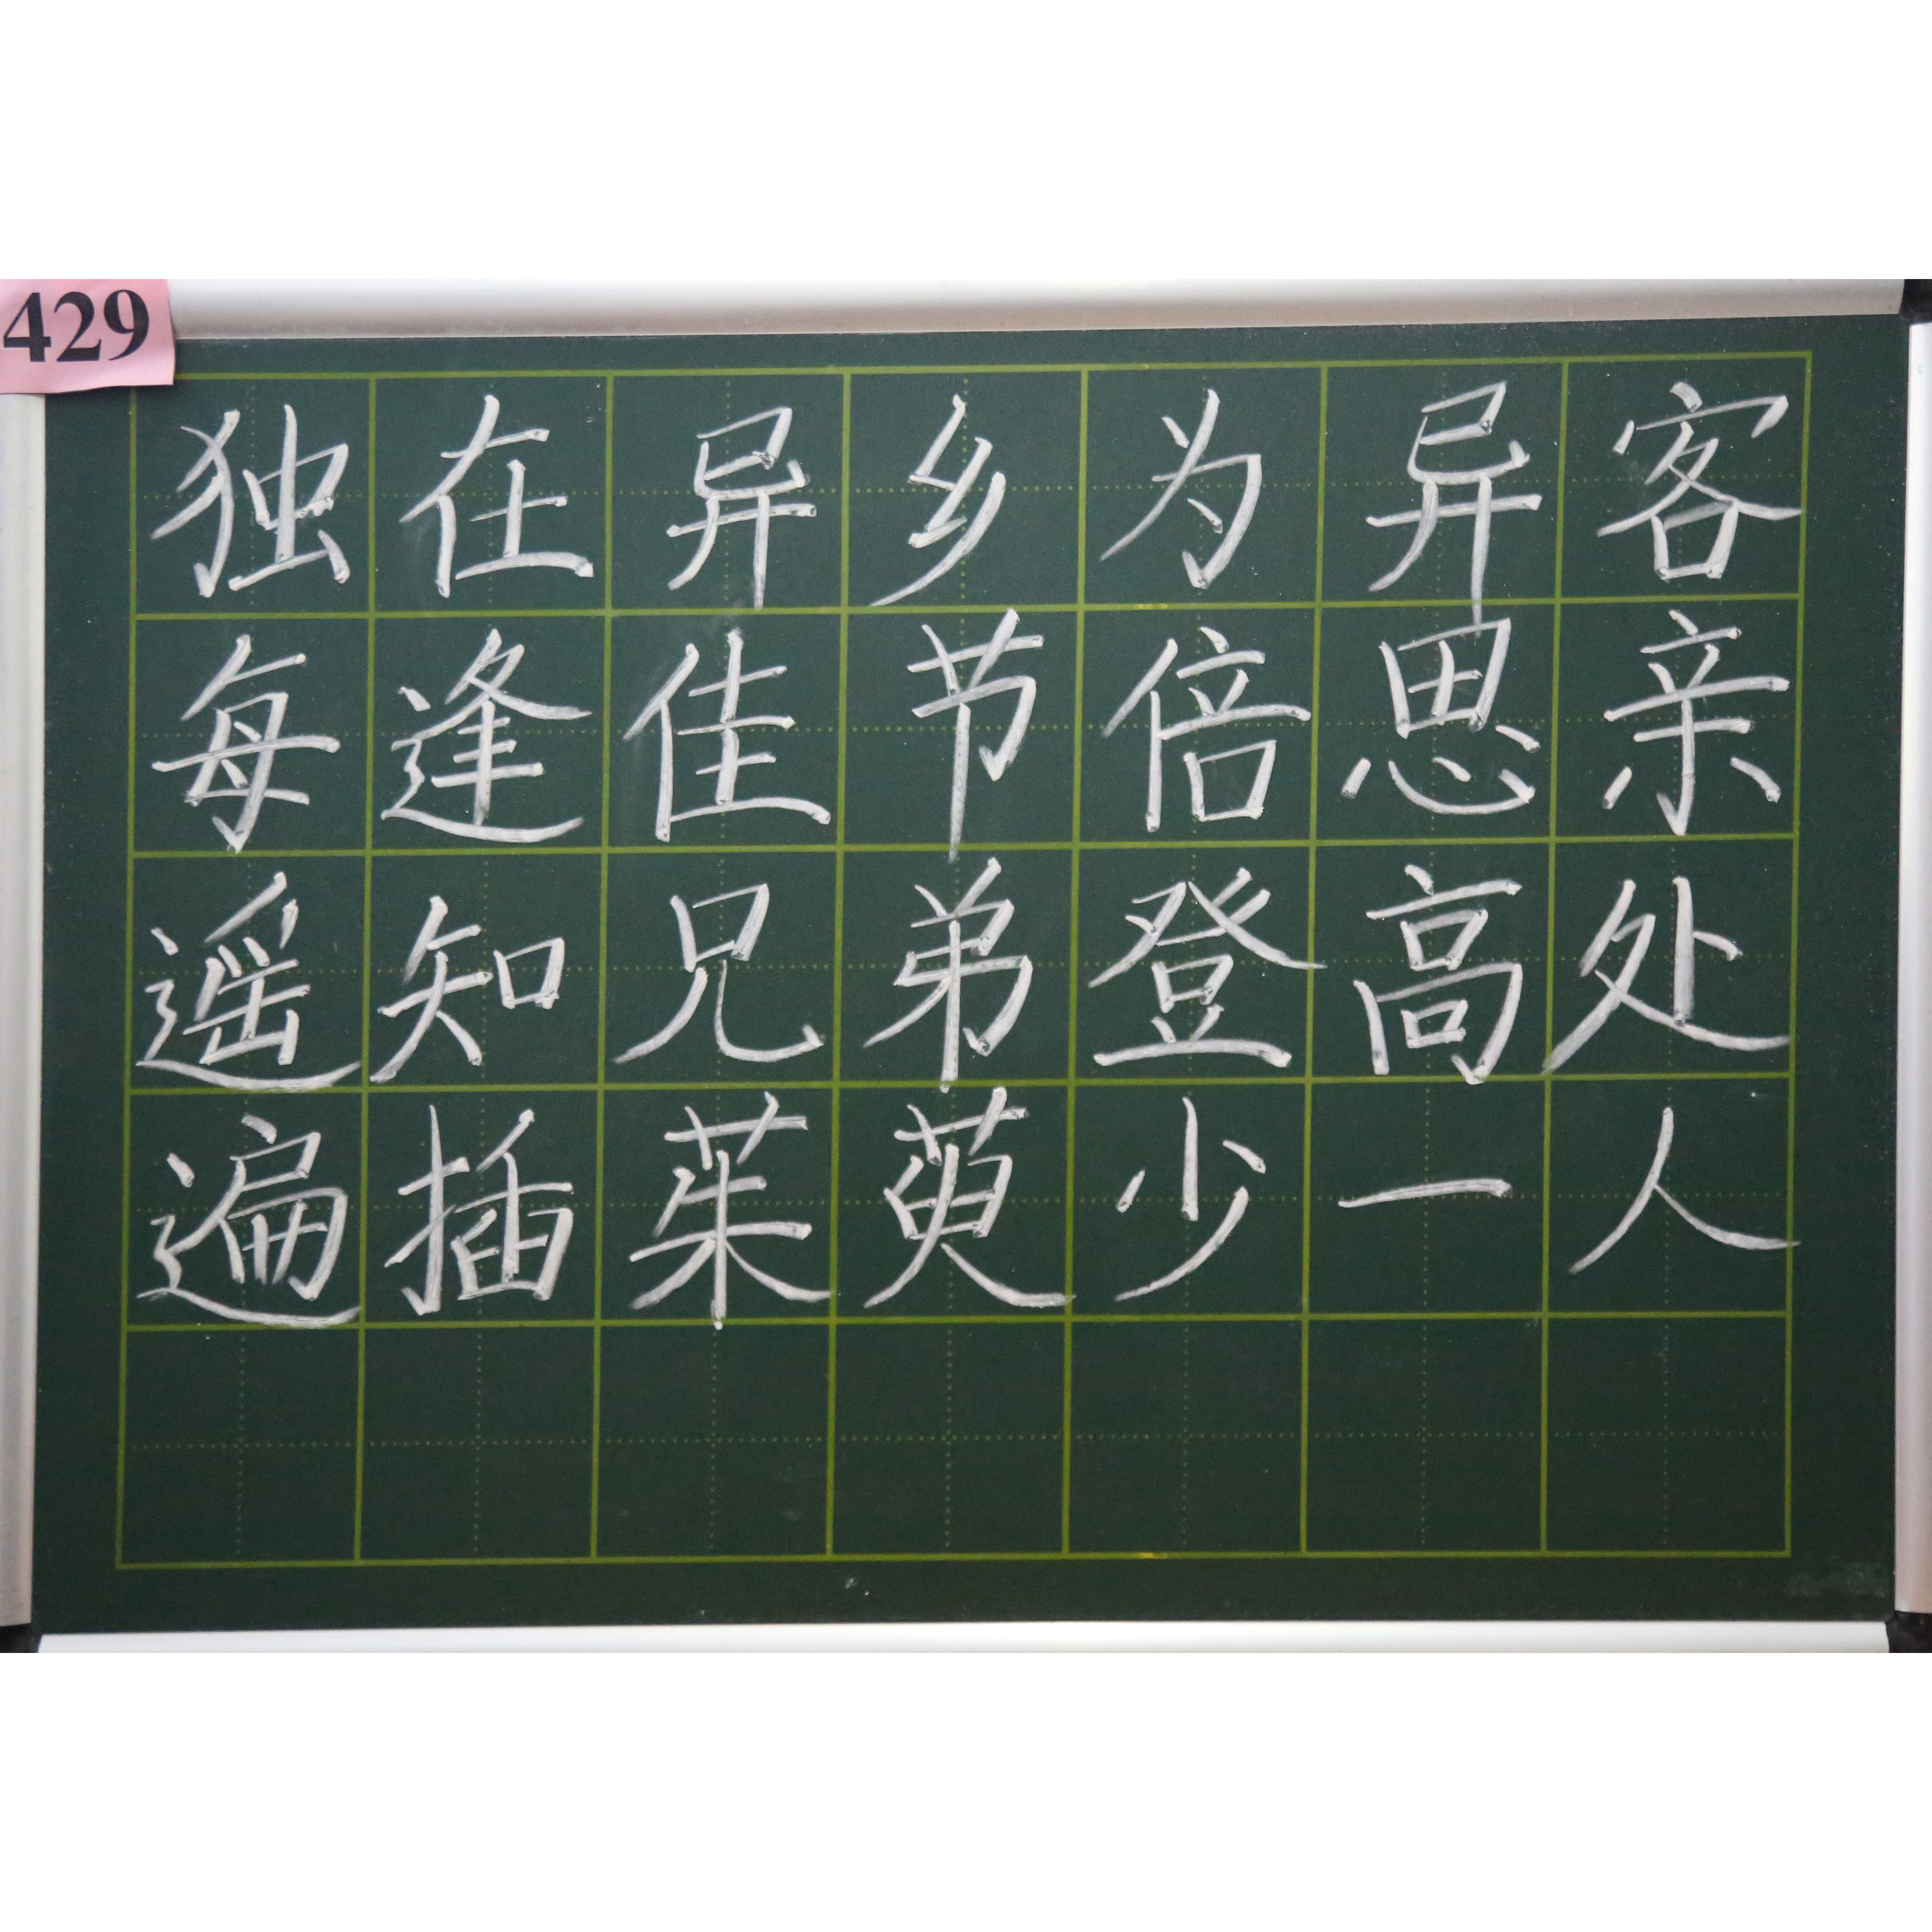 429
独在异乡为异客
每逢佳节倍思亲
遥知兄弟登高处
遍插茱萸少一人